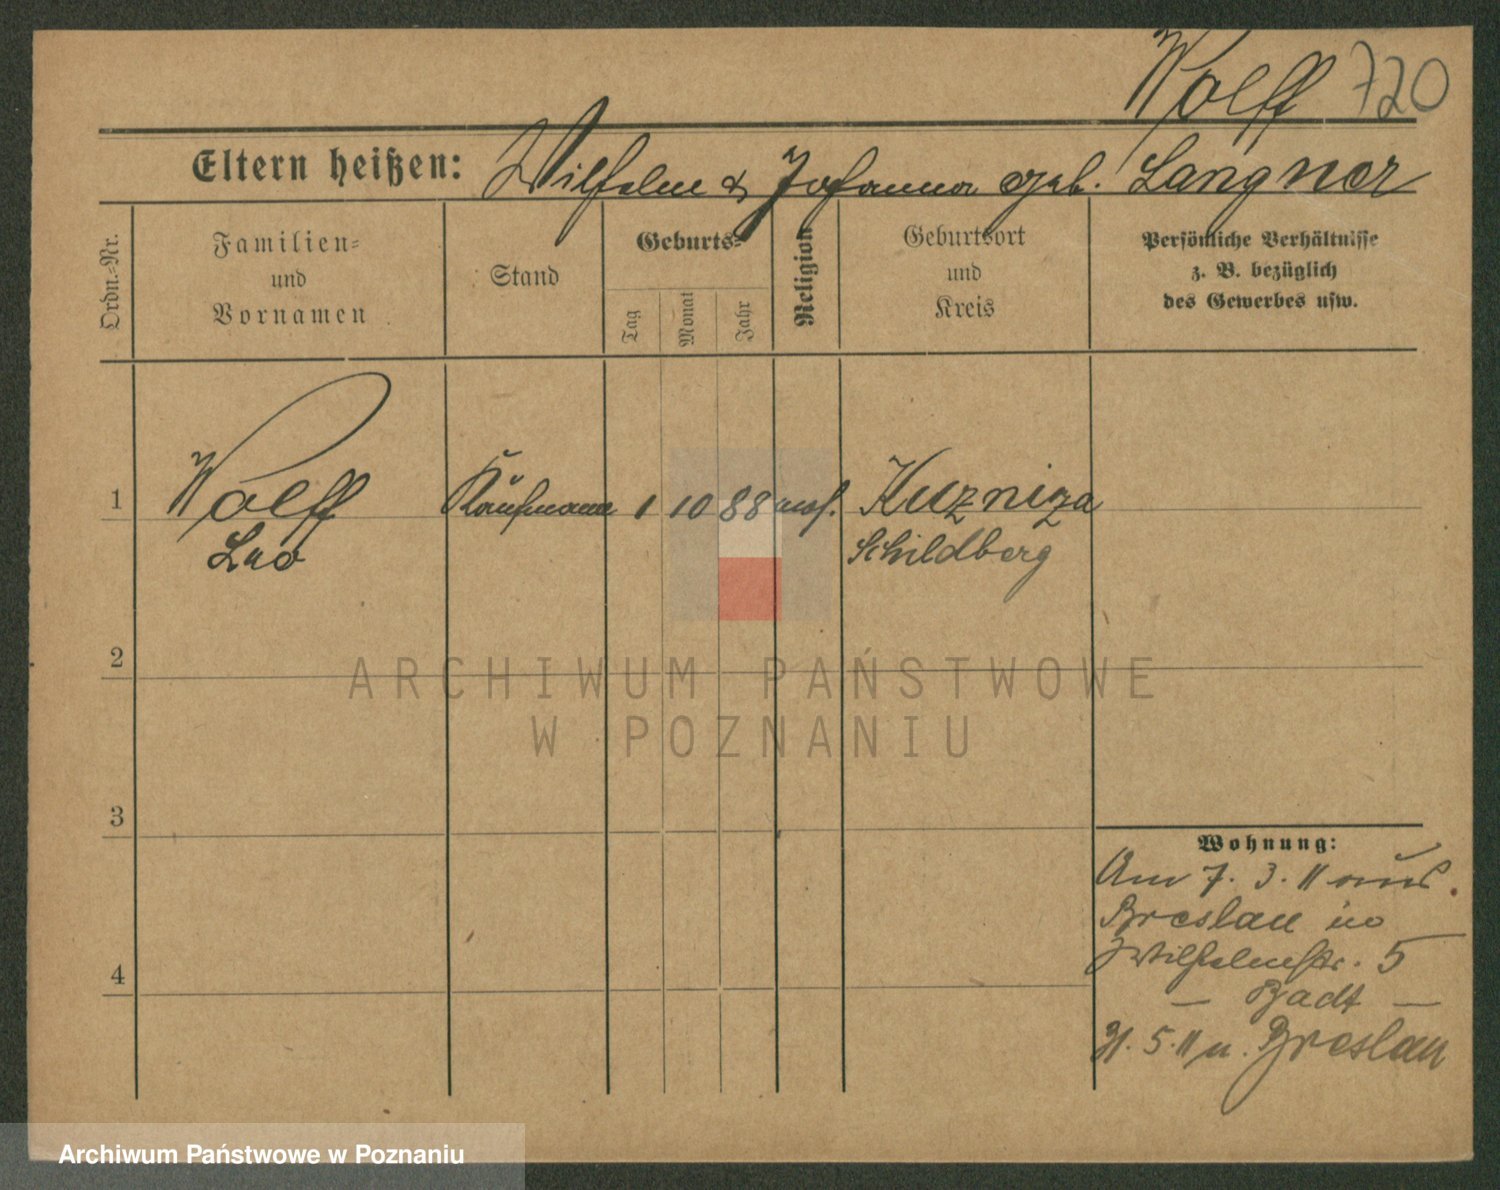 Wolff 720
Eltern heißen: Wilhelm & Johanna geb. Langner
Ordn.=Nr.
Familien=
und
Vornamen
Stand
Geburts=
Tag
Monat
Jahr
Religion
Geburtsort
und
Kreis
Persönliche Verhältnisse
z. B. bezüglich
des Gewerbes usw.
1 Wolff Kaufmann 1 10 88 mos. Kuzniza
Leo Schildberg
2
3
4
Wohnung:
Am 7. 3. 11 aus
Breslau in
Wilhelmstr. 5
— Badt —
5. 11 n. Breslau
ARCHIWUM PAŃSTWOWE
W POZNANIU
Archiwum Państwowe w Poznaniu